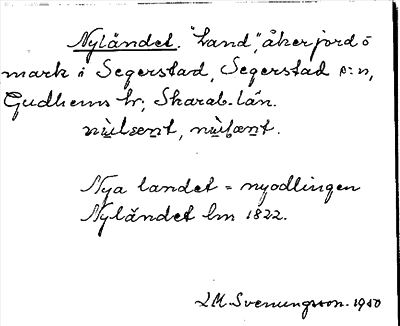 Nyländet. "Land", åkerjord o
mark i Segerstad, Segerstad s:n,
Gudhems hr; Skarab. län.
Nya landet = nyodlingen
Nyländet lm 1822.
L M. Svenungsson. 1950